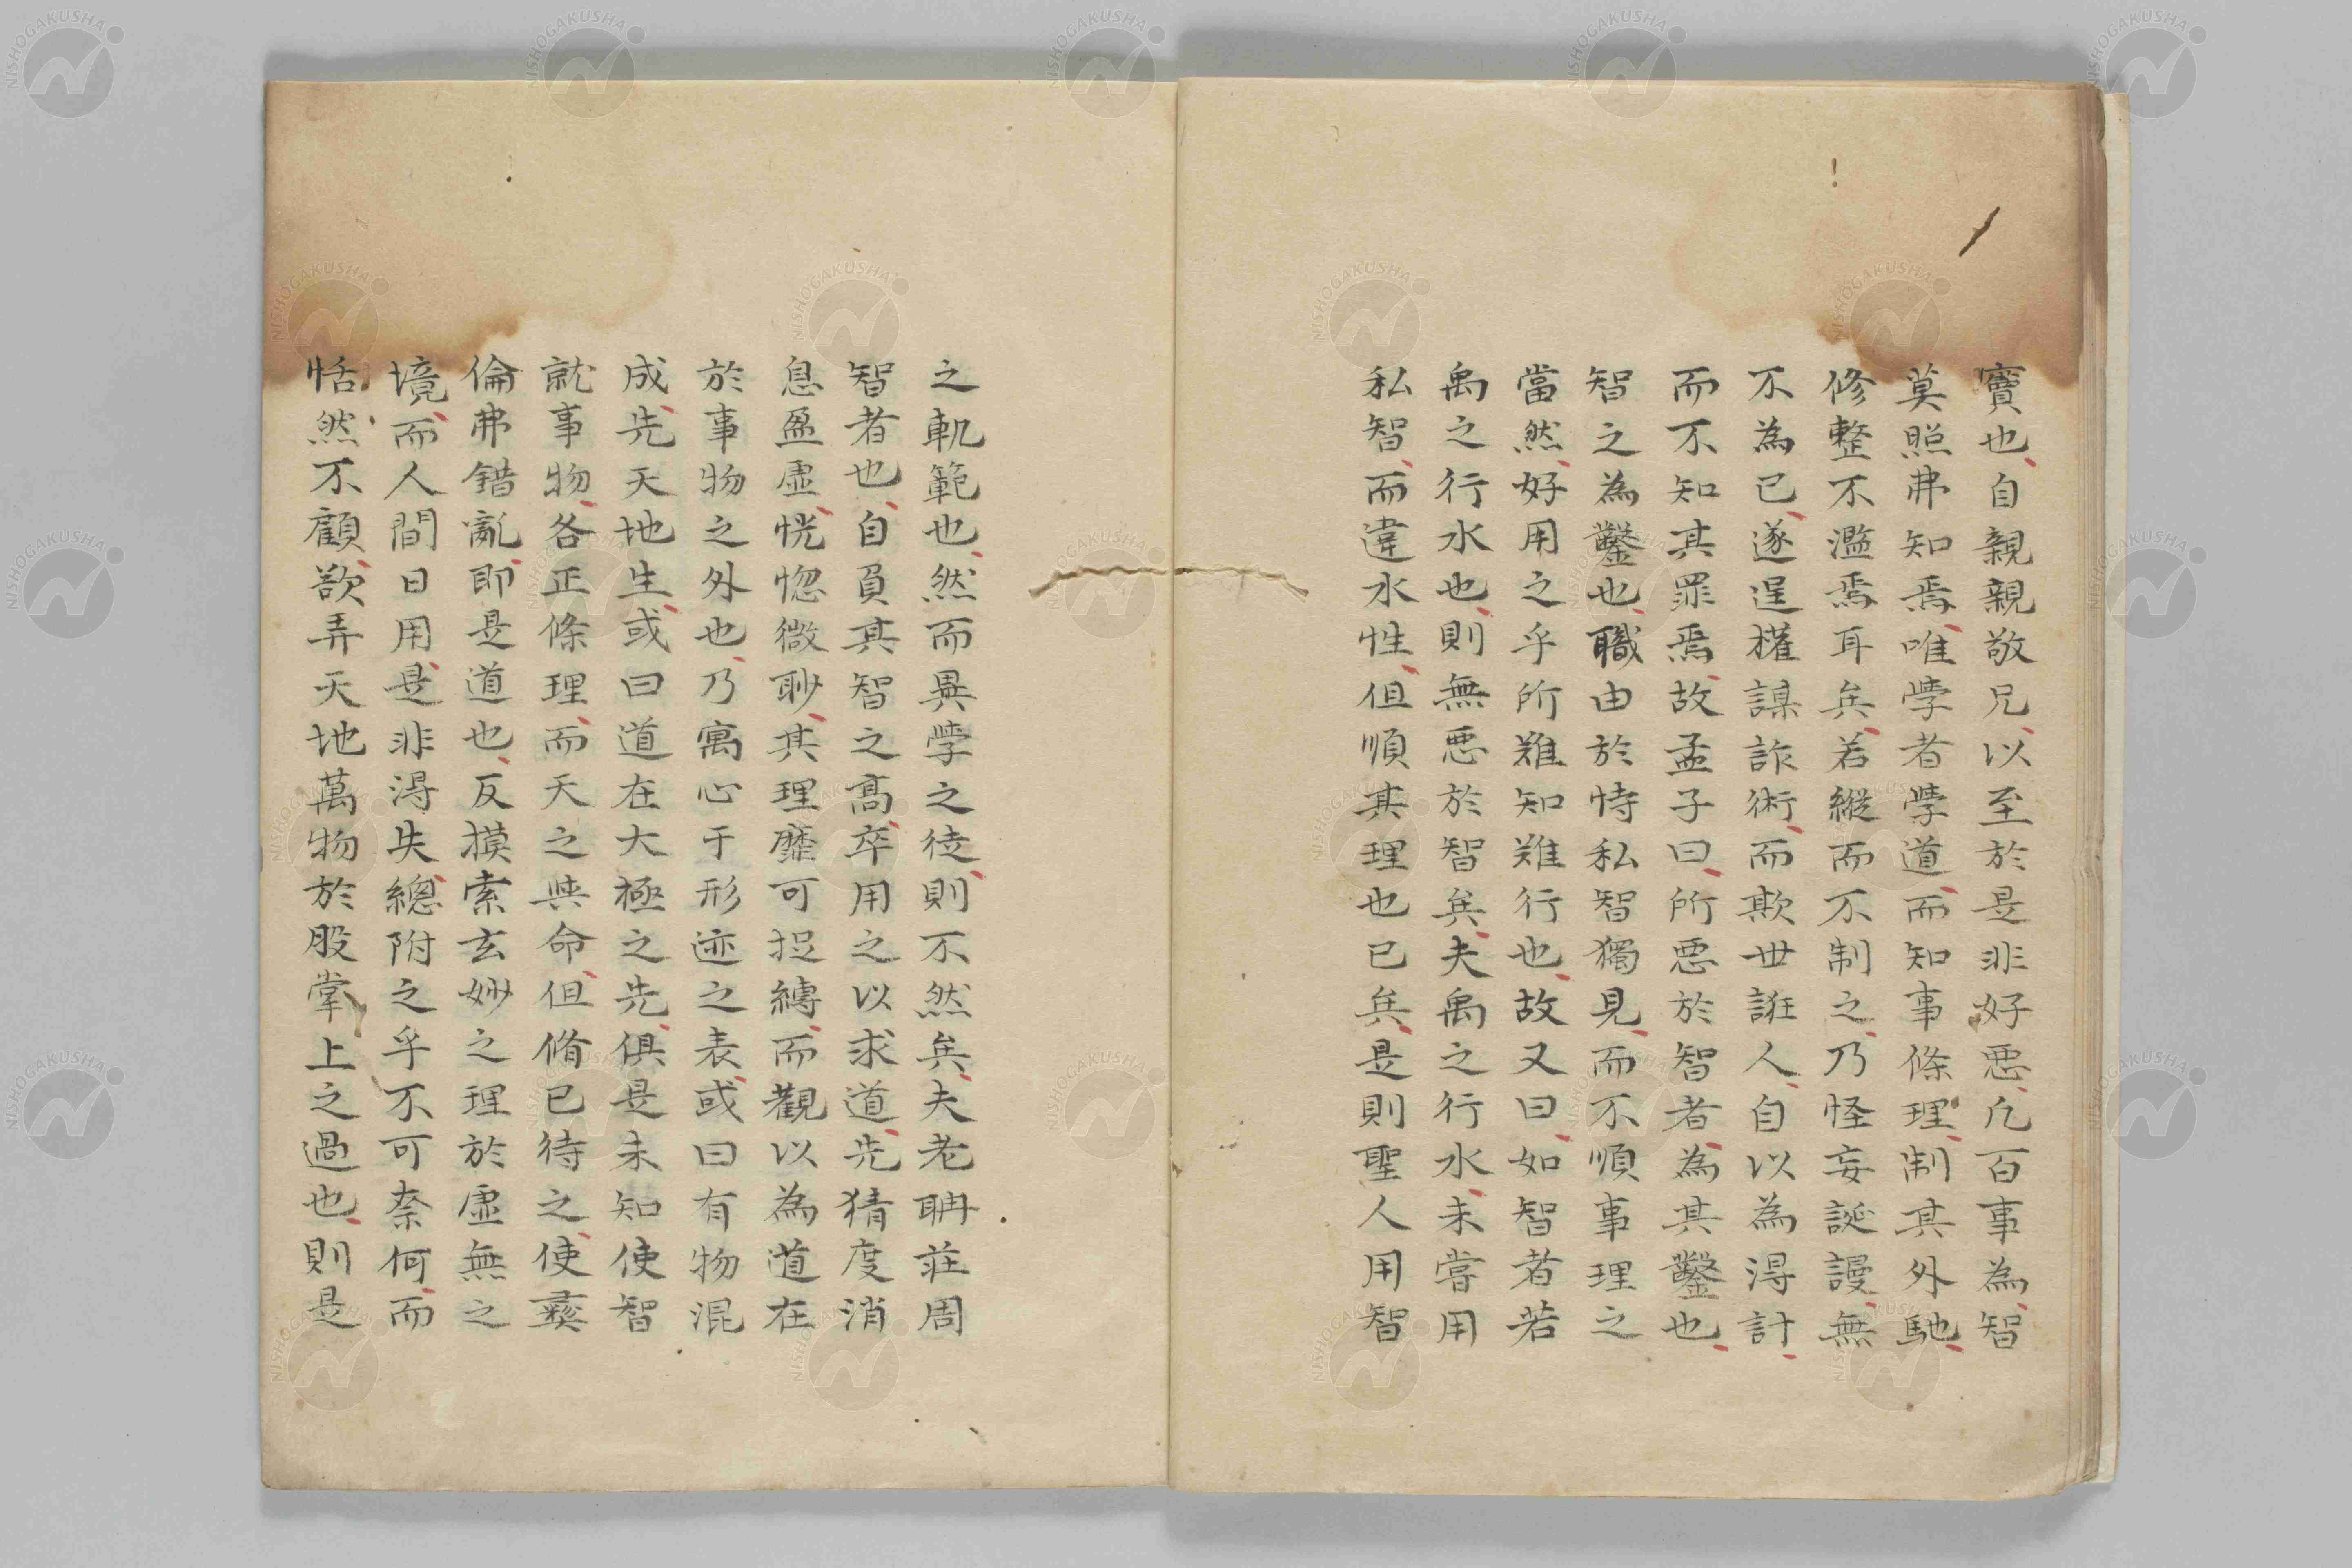 竇也自親親敬兄以至於是非好惡凡百事為智
莫照弗知焉唯學者學道而知事條理制其外馳
修整不濫焉耳矣若縱而不制之乃怪妄誕謾無
不為已遂逞權謀詐術而欺世誑人自以為得計
而不知其罪焉故孟子曰所惡於智者為其鑿也
智之為鑿也職由於恃私智獨見而不順事理之
當然好用之乎所難知難行也故又曰如智者若
禹之行水也則無惡於智矣夫禹之行水未嘗用
私智而違水性但順其理也已矣是則聖人用智
之軌範也然而異學之徒則不然矣夫老聃莊周
智者也自負其智之高卒用之以求道先猜度消
息盈虛恍惚微眇其理靡可捉縛而觀以為道在
於事物之外也乃寓心于形迹之表或曰有物混
成先天地生或曰道在大極之先俱是未知使智
就事物各正條理而天之與命但脩已待之使彝
倫弗錯亂即是道也反摸索玄妙之理於虛無之
境而人間日用是非得失總附之乎不可奈何而
恬然不顧欲弄天地萬物於股掌上之過也則是
NISHOGAKUSHA